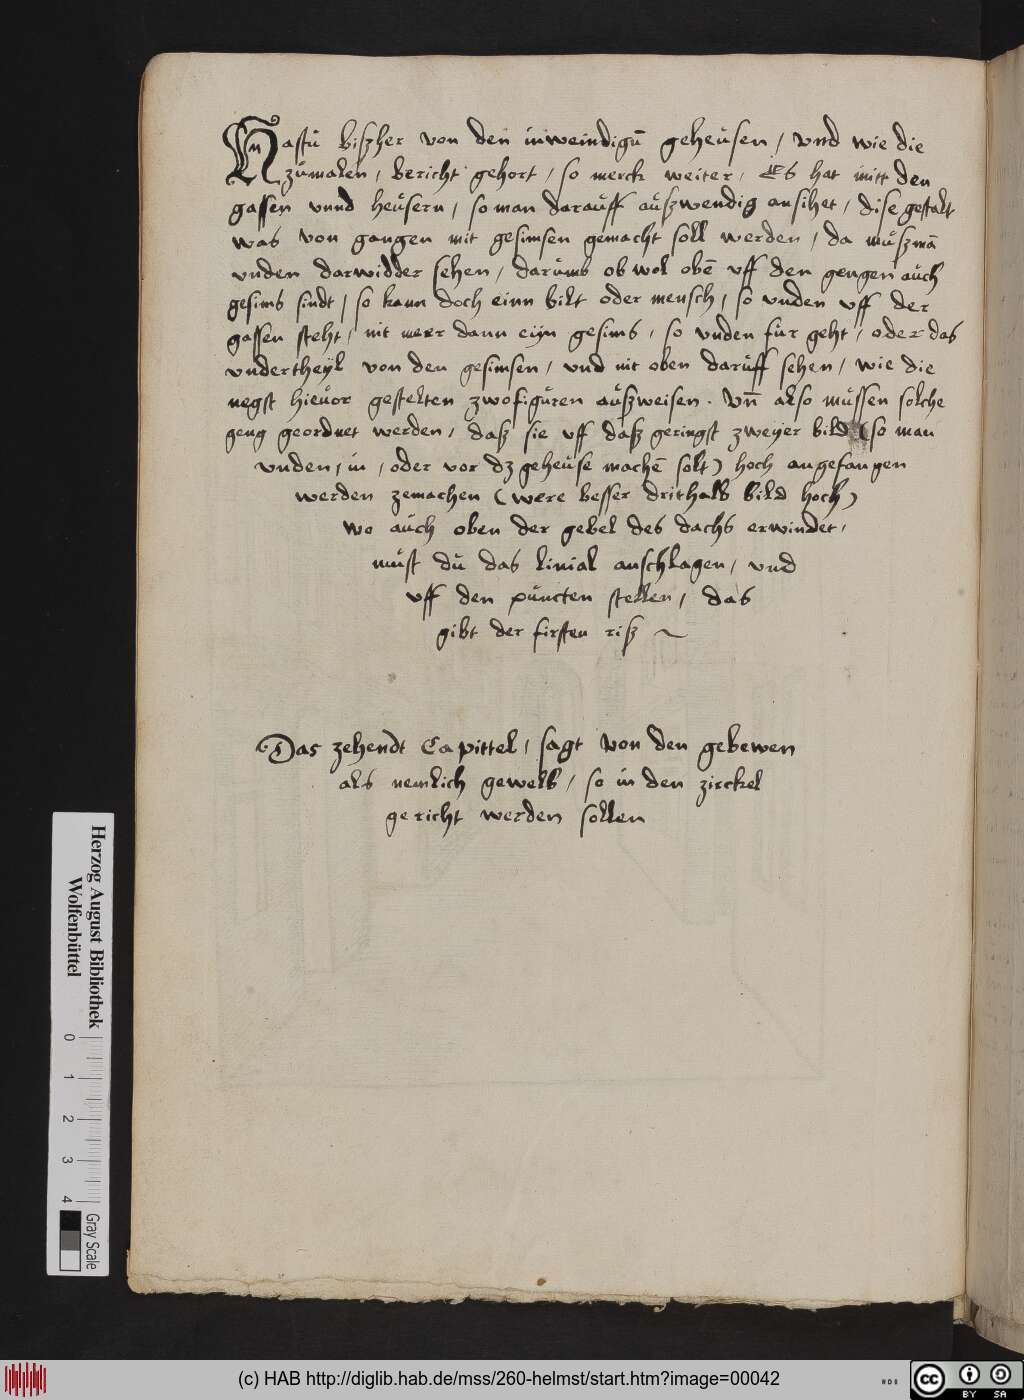 Hastu biszher von den inweindigū geheusen / vnd wie die
zumalen / bericht gehort / so merck weiter / Es hat mitt den
gassen vnnd heusern / so man darauff auszwendig ansihet / dise gestalt
was von gangen mit gesimsen gemacht soll werden / da muszmā
vnden darwidder sehen / darumb ob wol obē vff den gengen auch
gesims sindt / so kann doch einn bilt oder mensch / so vnden vff der
gassen steht / nit meer dann eyn gesims / so vnden für geht / oder das
vndertheyl von den gesimsen / vnd nit oben daruff sehen / wie die
negst hieuor gestelten zwo figuren auszweisen. Vn̄ also müssen solche
geng geordnet werden / dasz sie vff dasz geringst zweyer bild (so man
vnden / in / oder vor dz geheuse machē solt) hoch angefangen
werden zemachen (were besser drithalb bild hoch)
wo auch oben der gebel des dachs erwindet /
must du das linial anschlagen / vnd
vff den puncten stellen / das
gibt der firsten risz ~
Das zehendt Capittel / sagt von den gebewen
als nemlich gewelb / so in den zirckel
gericht werden sollen
Herzog August Bibliothek
Wolfenbüttel
0 1 2 3 4
Gray Scale
(c) HAB http://diglib.hab.de/mss/260-helmst/start.htm?image=00042
cc BY SA